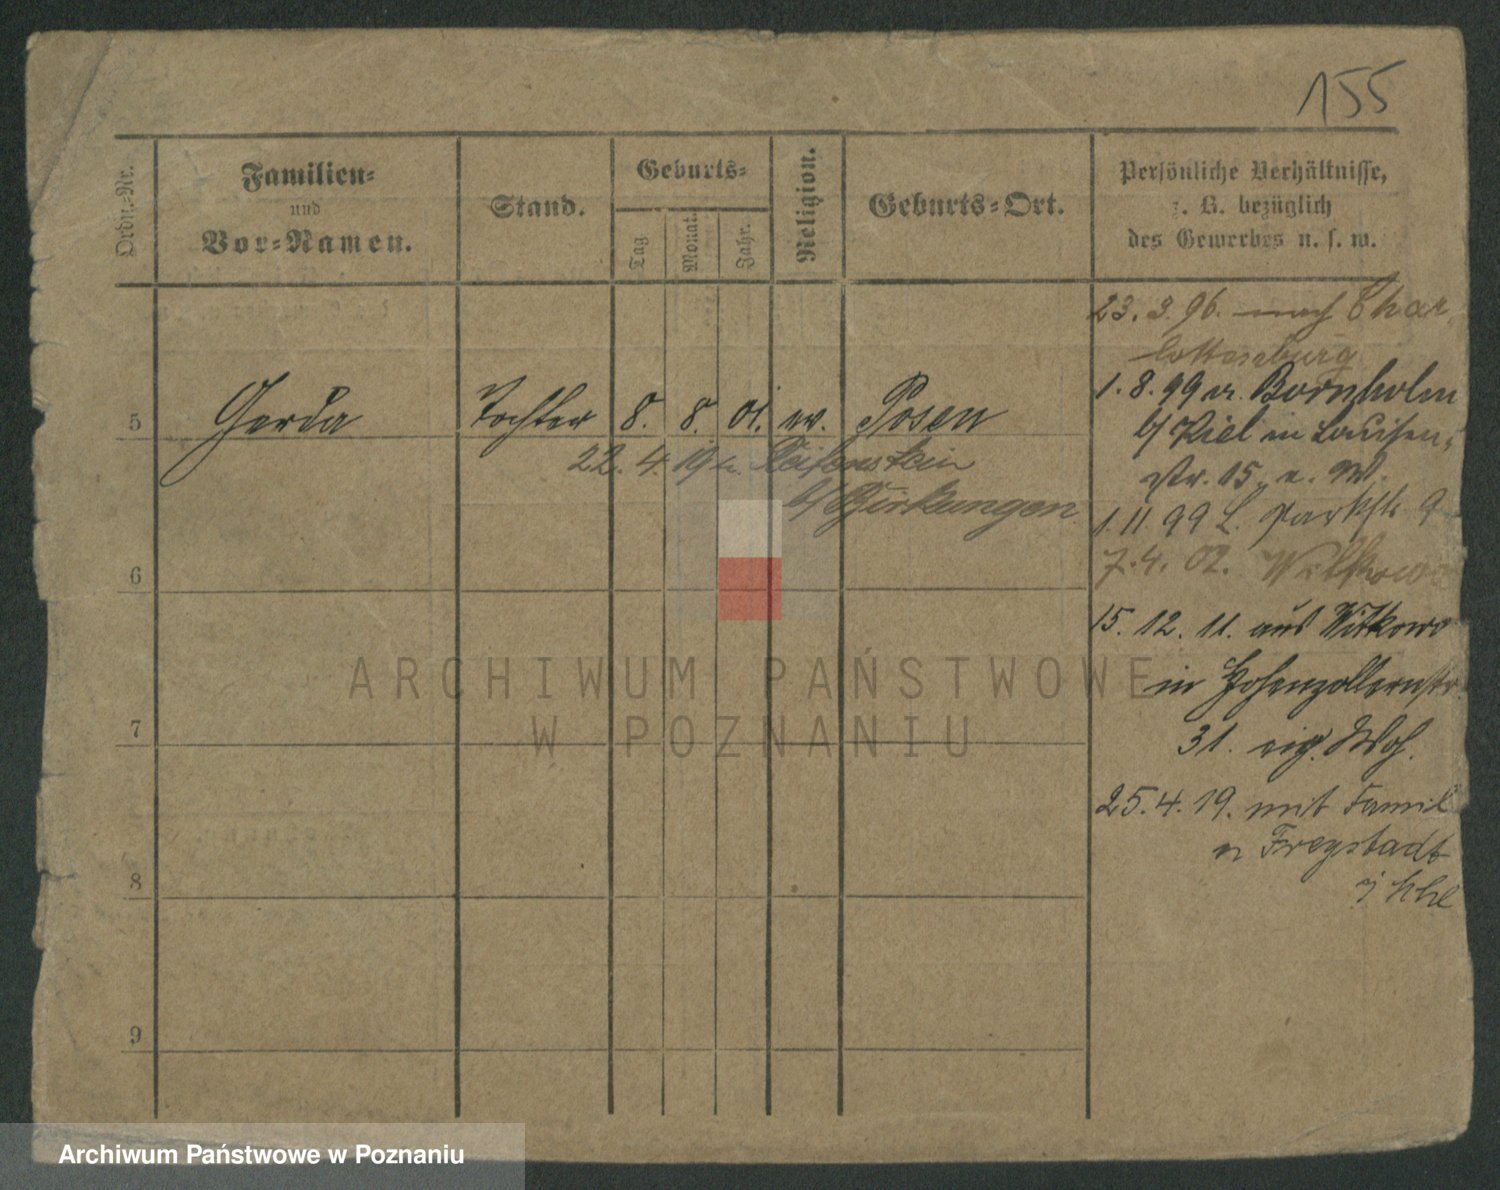 155
Ordn.-Nr.
Familien-
und
Vor-Namen.
Stand.
Geburts-
Tag
Monat.
Jahr.
Religion.
Geburts-Ort.
Persönliche Verhältnisse,
z. B. bezüglich
des Gewerbes u. s. w.
23. 3. 96. nach Char
lottenburg
1. 8. 99 v. Bornholm
b/ Kiel in Louisen-
Str. 15 e. W.
5 Gerda Tochter 8. 8. 01. ev. Posen
22. 4. 19 n. Reifenstein
b/ Birkungen
1. 11 99 L. Parkstr 9
7. 4. 02. Witkowo
6
15. 12. 11. aus Witkowo
in Hohenzollernstr.
31. eig. Woh.
7
25. 4. 19. mit Famil
n Freystadt
8
9
ARCHIWUM PAŃSTWOWE
W POZNANIU
Archiwum Państwowe w Poznaniu